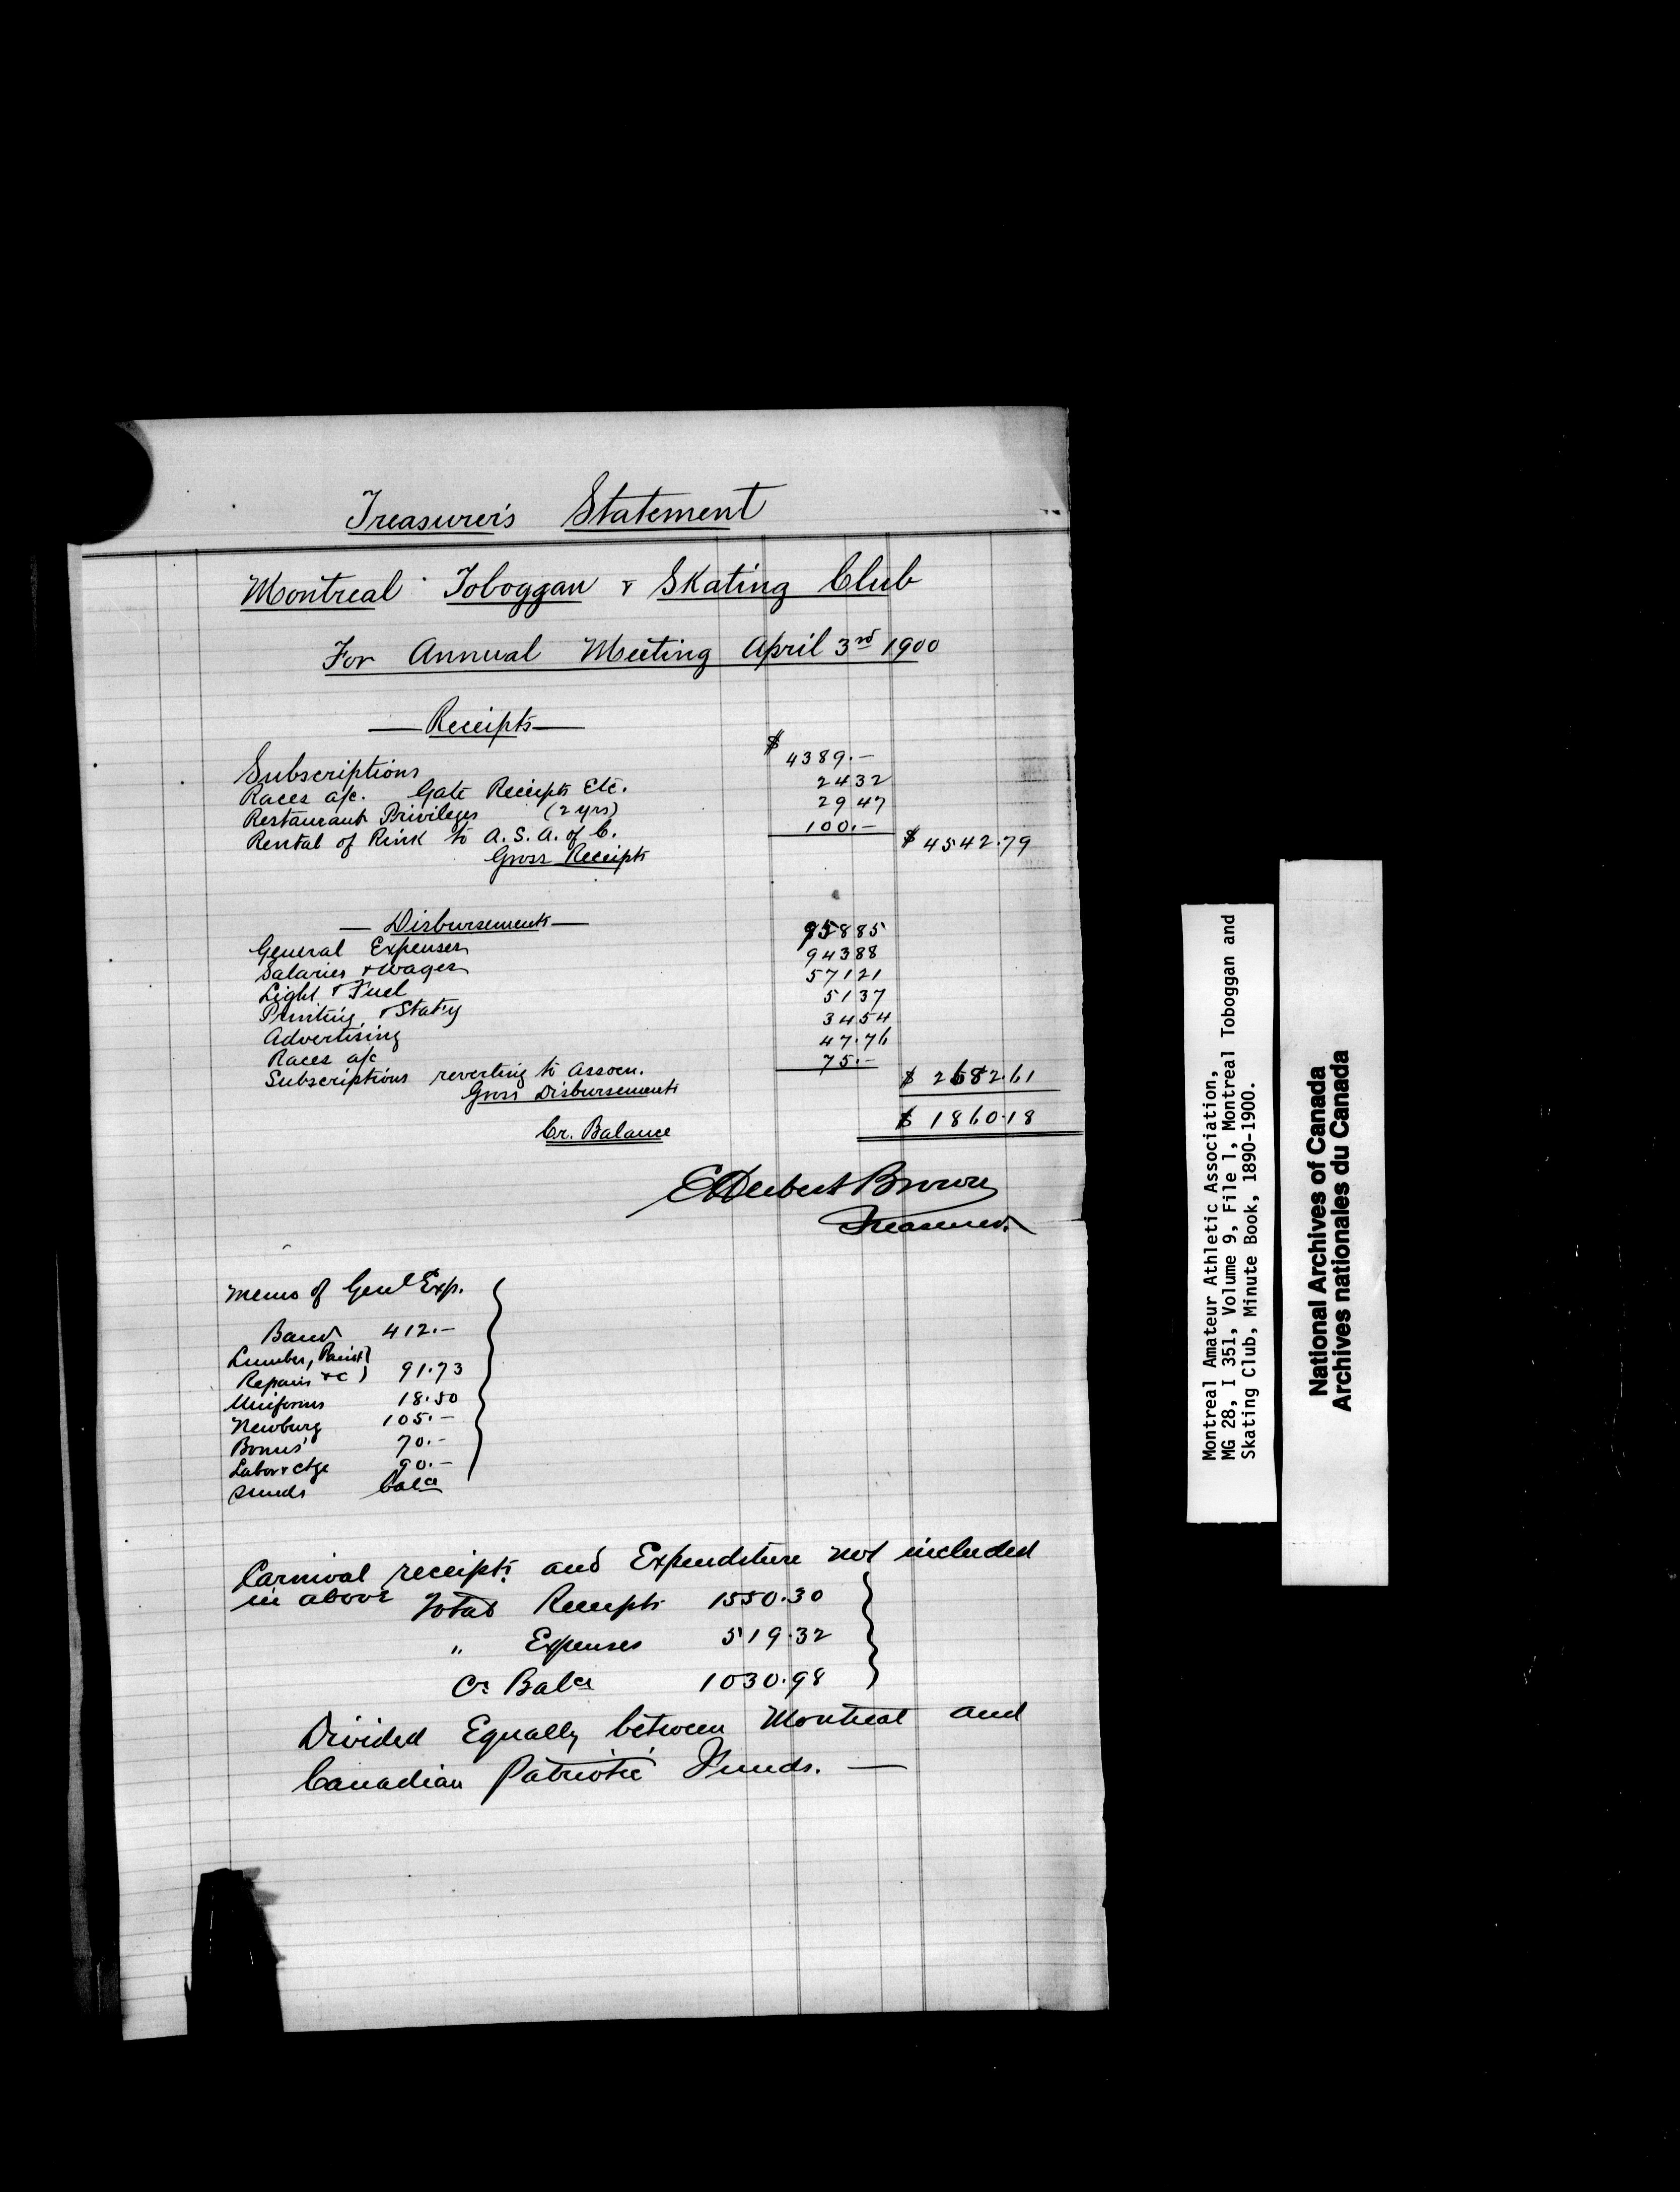 Treasurer's Statement
Montreal Toboggan & Skating Club
For Annual Meeting April 3rd 1900
— Receipts —
$
Subscriptions 4389.–
Races a/c. Gate Receipts Etc. 24 32
Restaurant Privileges (2 yrs) 29 47
Rental of Rink to A. S. A. of C. 100.–
Gross Receipts $ 4542.79
— Disbursements —
General Expenses 958 85
Salaries & Wages 943 88
Light & Fuel 571 21
Printing & Stat'y 51 37
Advertising 34 54
Races a/c 47.76
Subscriptions reverting to Assocn. 75.–
Gross Disbursements $ 2682.61
Cr. Balance $ 1860.18
Herbert Brown
Treasurer.
Memo of Genl Exp.
Band 412.–
Lumber, Paint
Repairs &c 91.73
Uniforms 18.50
Newburg 105.–
Bonus' 70.–
Labor & Ctge 90.–
Sunds Balce
Carnival receipts and Expenditure not included
in above Total Receipts 1550.30
" Expenses 519.32
Cr Balce 1030.98
Divided Equally between Montreal and
Canadian Patriotic Funds. —
Montreal Amateur Athletic Association,
MG 28, I 351, Volume 9, File 1, Montreal Toboggan and
Skating Club, Minute Book, 1890-1900.
National Archives of Canada
Archives nationales du Canada